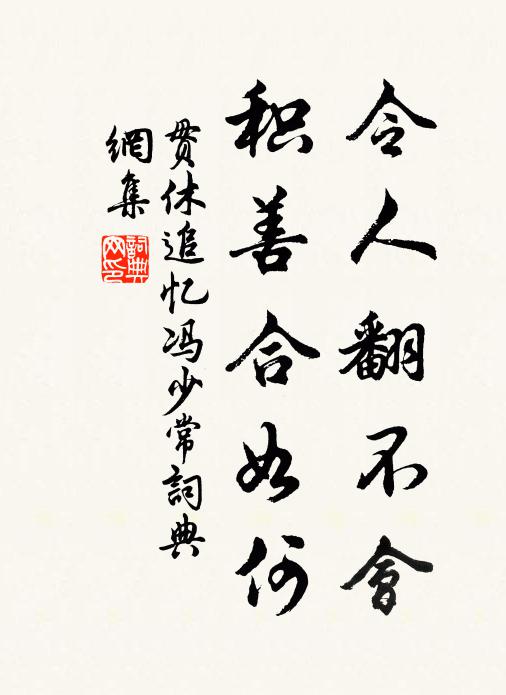 令人翻不會
积善合如何
贯休追忆冯少常詞典
網集
詞典网印